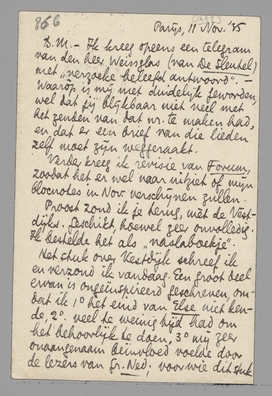 866
Parijs, 11 Nov. '35
B.M. - Ik kreeg opeens een telegram
van den heer Weinglas (van De Sleutel)
met „verzoeke beleefd antwoord". -
Waarop is mij niet duidelijk geworden,
wel dat jij blijkbaar niet veel met
het zenden van dat nr. te maken had,
en dat er een brief van die lieden
zelf moet zijn weggeraakt.
Verder kreeg ik revisie van Forum,
zoodat het er wel naar uitziet of mijn
blocnotes in Nov. verschijnen zullen.
Proost zond ik je terug, mèt de Vest-
dijks. Geschikt hoewel zeer onvolledig.
Ik bestelde het als „naslaboekje".
Het stuk over Vestdijk schreef ik
en verzond ik vandaag. Een groot deel
ervan is ongeïnspireerd geschreven om-
dat ik 1° het eind van Else niet ken-
de, 2° veel te weinig tijd had om
het behoorlijk te doen, 3° mij zeer
onaangenaam beïnvloed voelde door
de lezers van Gr. Ned. voor wie dit stuk